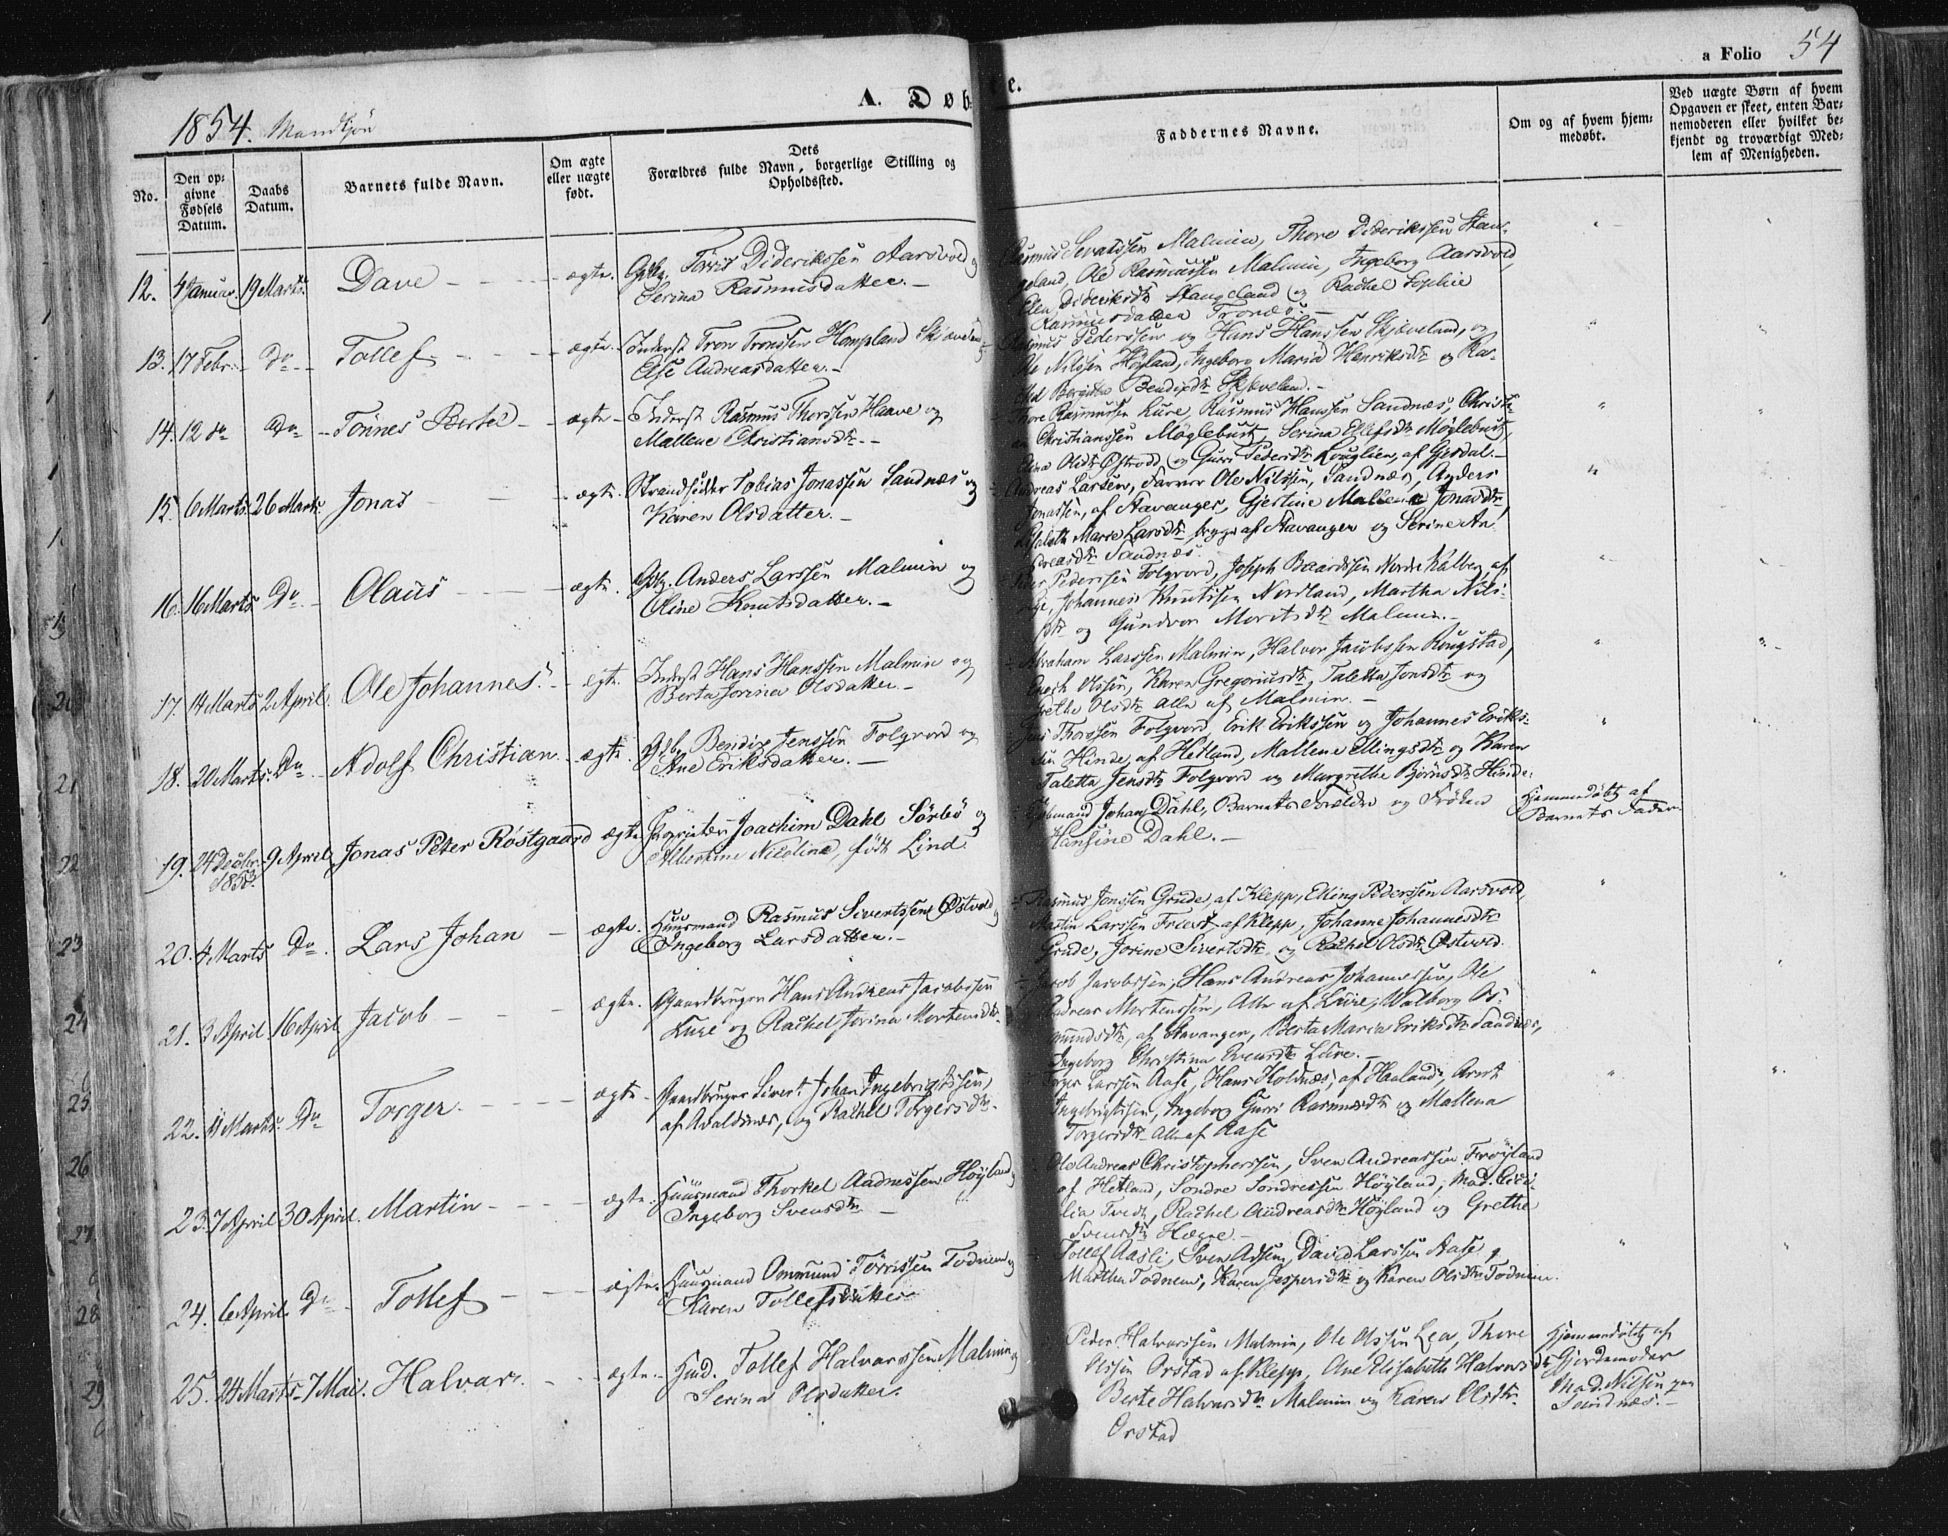 1854. Mandkjøn
A. Døbte.
a Folio 54
No.
Den op-
givne
Fødsels
Datum.
Daabs
Datum.
Barnets fulde Navn.
Om ægte
eller uægte
født.
Dets
Forældres fulde Navn, borgerlige Stilling og
Opholdssted.
Faddernes Navne.
Om og af hvem hjem-
medøbt.
Ved uægte Børn af hvem
Opgaven er skeet, enten Bar-
nemoderen eller hvilket be-
kjendt og troværdigt Med-
lem af Menigheden.
12. 4 Januar. 19 Marts. Dave ægte. Gbr. Tørris Dideriksen Aarsvold og
Serina Rasmusdatter.
Rasmus Sevatssen Malmin, Thore Dideriksen Stan-
geland, Ole Rasmussen Malmin, Ingeborg Aarsvold,
Elen Dideriksdtr Stangeland og Rachel Sophie
Rasmusdatter Tronæs.
13. 17 Febr. Do Tollef ægte. Inderst Tron Tronssen Hompland Skjæveland og
Else Andreasdatter.
Rasmus Pederssen og Hans Hanssen Skjæveland, og
Ole Nilssen Høyland, Ingeborg Maria Henriksdtr og Ra-
chel Bergitte Bendixdtr Skjæveland.
14. 12 do Do Tønnes Bertel ægte Inderst Rasmus Thorssen Haave og
Mallene Christiansdtr.
Thore Rasmussen Lure, Rasmus Hanssen Sandnæs, Christi-
an Christianssen Møglebust, Serina Ellefsdtr Møglebust,
Elina Olsdtr Østraad og Gurri Pedersdtr Lauglien, af Gjesdal.
15. 6 Marts. 26 Marts Jonas ægte. Strandsidder Tobias Jonassen Sandnæs og
Karen Olsdatter.
Andreas Larsen, Farver Ole Nilssen, Sandnæs, Anders
Jonassen, af Stavanger, Gjertine Mallene Jonasdtr
Lisabeth Marie Larsdtr, begge af Stavanger og Serine An-
dreasdtr Sandnæs.
16. 16 Marts Do Olaus ægte. Gbr. Anders Larssen Malmin og
Oline Knutsdatter.
Peder Pederssen Folgvord, Joseph Baardssen Nordre Kalberg, af
Lye, Johannes Knutssen Nordland, Martha Nils-
dtr og Gundvor Moritsdtr Malmin.
17. 14 Marts 2 April. Ole Johannes. ægte. Inderst Hans Hanssen Malmin og
Berta Jorina Olsdatter.
Abraham Larssen Malmin, Halvor Jacobssen Rougstad,
Enoch Olssen, Karen Gregoriusdtr, Taletta Jonsdtr og
Grethe Olsdtr Alle af Malmin.
18. 20 Marts. Do Adolf Christian. ægte. Gbr. Bendix Jenssen Folgvord og
Ane Eriksdatter.
Jens Thorssen Folgvord, Erik Erikssen og Johannes Eriks-
sen Hinde, af Hetland, Mallene Ellingsdtr og Karen
Taletta Jensdtr Folgvord og Margrethe Bjørnsdtr Hinde.
19. 24 Decbr. 1853. 9 April Jonas Peter Røstgaard ægte. Proprietær Joachim Dahl Sørbø og
Albertine Nicoline, født Lind
Kjøbmand Johan Dahl, Barnets Forældre og Frøken
Hansine Dahl.
Hjemmedøbt af
Barnets Fader
20. 4 Marts Do. Lars Johan ægte. Huusmand Rasmus Sivertssen Østvold og
Ingeborg Larsdatter.
Rasmus Jonssen Grude, af Klepp, Elling Pederssen Aarsvold,
Martin Larssen Friest af Klepp, Johanne Johannesdtr
Grude, Jorine Sivertsdtr og Rachel Olsdtr Østvold.
21. 3 April 16 April Jacob ægte. Gaardbruger Hans Andreas Jacobssen
Lure og Rachel Jorina Mortensdtr.
Jacob Jacobssen, Hans Andreas Johannessen, Ole
Andreas Mortenssen, Alle af Lure, Walborg Os-
mundsdtr, af Stavanger, Berta Maria Eriksdtr Sandnæs,
Ingeborg Christina Svensdtr Lure.
22. 11 Marts. Do Torger. ægte. Gaardbruger Sivert Johan Ingebrigtssen,
af Avaldsnæs, og Rachel Torgersdtr.
Torger Larssen Aase, Hans Holdnæs, af Haaland, Avert
Ingebrigtssen, Ingeborg Gurri Rasmusdtr og Mallena
Torgersdtr Alle af Aase
23. 7 April 30 April. Martin ægte. Huusmand Thorkel Aadnessen Høyland og
Ingeborg Svensdtr
Ole Andreas Christopherssen, Sven Andreassen Frøyland
af Hetland, Sondre Sondressen Høyland, Mad. Ceci-
lia Tvedt, Rachel Andreasdtr Høyland og Grethe
Svensdtr Hægre.
24. 6 April. Do Tollef ægte. Huusmand Ommund Tørrissen Todnem og
Karen Tollefsdatter
Tollef Aasli, Sven Adsen, David Larssen Aase,
Martha Todnem, Karen Jespersdtr og Karen Olsdtr Todnem.
25. 24 Marts 7 Mai. Halvar. ægte. Huusd. Tollef Halvarssen Malmin og
Serina Olsdatter.
Peder Halvarssen Malmin, Ole Olssen Lea, Thore
Olssen Orstad af Klepp, Ane Elisabeth Halvarsdtr
Berte Halvarsdtr Malmin og Karen Olsdtr
Orstad
Hjemmedøbt af
Gjordemoder
Mad. Nilsen paa
Sandnæs.